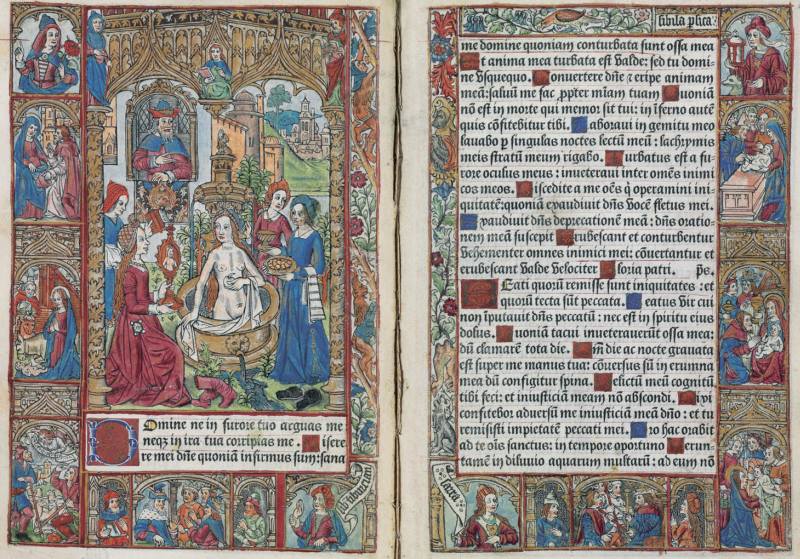 Domine ne in furore tuo arguas me
neqz in ira tua corripias me. Misere
re mei dñe quoniã infirmus sum: sana
sib tiburtina
sibila p̱sica
me domine quoniam conturbata sunt ossa mea
Et anima mea turbata est valde: sed tu domi-
ne vsquequo. Conuertere dñe ⁊ eripe animam
meã: saluũ me fac ꝓpter mĩam tuam Quoniã
nõ est in morte qui memor sit tui: in ĩferno autẽ
quis cõfitebitur tibi. Laboraui in gemitu meo
lauabo ꝑ singulas noctes lectũ meũ: lachrymis
meis stratũ meum rigabo. Turbatus est a fu-
rore oculus meus: inueteraui inter oẽs inimi
cos meos. Discedite a me oẽs q̃ operamini ini
quitatẽ: quoniã exaudiuit dñs vocẽ fletus mei.
Exaudiuit dñs deprecationẽ meã: dñs oratio-
nem meã suscepit Erubescant et conturbentur
vehementer omnes inimici mei: cõuertantur et
erubescant valde velociter Gloria patri. ps.
Beati quorũ remisse sunt iniquitates: et
quorũ tecta sũt peccata. Beatus vir cui
non ĩputauit dñs peccatũ: nec est in spiritu eius
dolus. Quoniã tacui inueterauerũt ossa mea:
dũ clamarẽ tota die. Qm̃ die ac nocte grauata
est super me manus tua: cõuersus sũ in erumna
mea dũ configitur spina. Delictũ meum cognitũ
tibi feci: et iniusticiam meam nõ abscondi. Dixi
confitebor aduersũ me iniusticiã meã dño: et tu
remisisti impietatẽ peccati mei. Pro hac orabit
ad te oĩs sanctus: in tempore oportuno Verun
tamẽ in diluuio aquarum multarũ: ad eum nõ